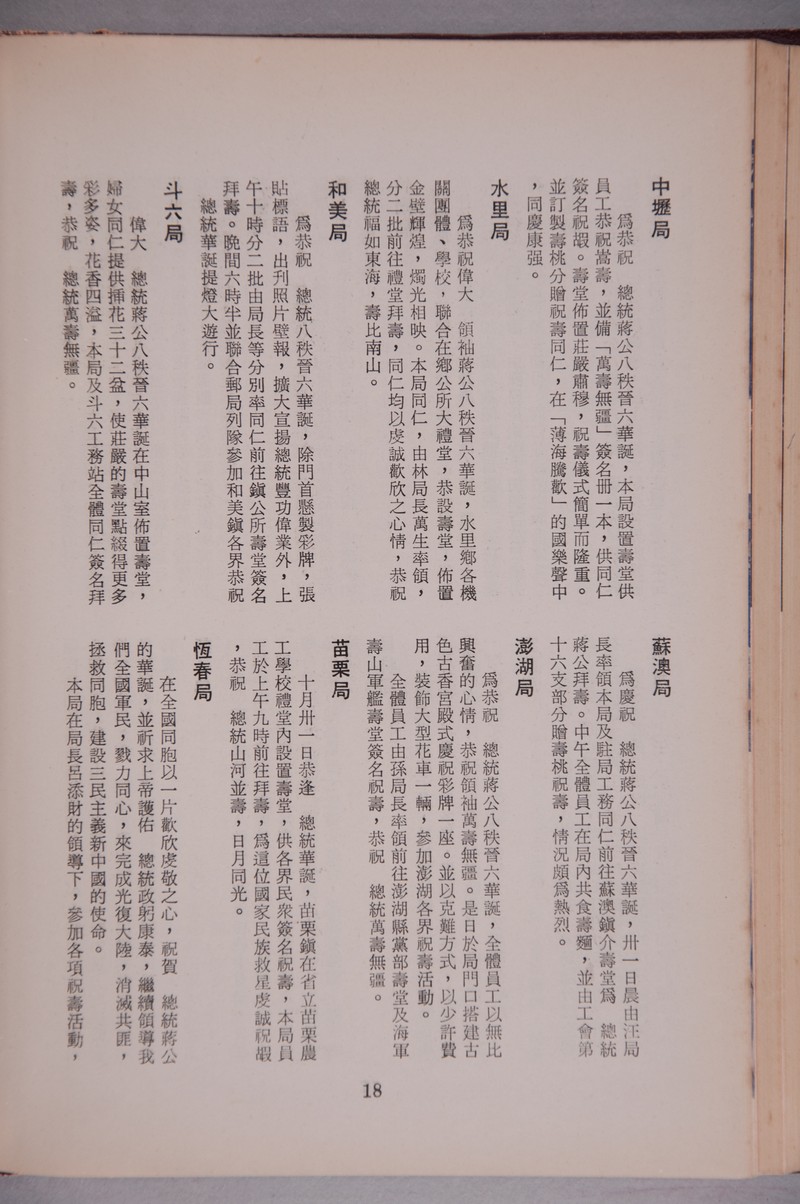 中壢局
爲恭祝　總統蔣公八秩晉六華誕，本局設置壽堂供
員工恭祝嵩壽，並備「萬壽無疆」簽名册一本，供同仁
簽名祝嘏。壽堂佈置莊嚴肅穆，祝壽儀式簡單而隆重。
並訂製壽桃分贈祝壽同仁，在「薄海騰歡」的國樂聲中
，同慶康强。
水里局
爲恭祝偉大　領袖蔣公八秩晉六華誕，水里鄉各機
關團體、學校，聯合在鄉公所大禮堂，恭設壽堂，佈置
金壁輝煌，燭光相映。本局同仁，由林局長萬生率領，
分二批前往禮堂拜壽，同仁均以虔誠歡欣之心情，恭祝
總統福如東海，壽比南山。
和美局
爲恭祝　總統八秩晉六華誕，除門首懸製彩牌，張
貼標語，出刋照片壁報，擴大宣揚總統豐功偉業外，上
午十時分二批由局長等分別率同仁前往鎭公所壽堂簽名
拜壽。晚間六時半並聯合郵局列隊參加和美鎭各界恭祝
總統華誕提燈大遊行。
斗六局
偉大　總統蔣公八秩晉六華誕在中山室佈置壽堂，
婦女同仁提供揷花三十二盆，使莊嚴的壽堂點綴得更多
彩多姿，花香四溢，本局及斗六工務站全體同仁簽名拜
壽，恭祝　總統萬壽無疆。
蘇澳局
爲慶祝　總統蔣公八秩晉六華誕，卅一日晨由汪局
長率領本局及駐局工務同仁前往蘇澳鎭介壽堂爲　總統
蔣公拜壽。中午全體員工在局內共食壽麵，並由工會第
十六支部分贈壽桃祝壽，情況頗爲熱烈。
澎湖局
爲恭祝　總統蔣公八秩晉六華誕，全體員工以無比
興奮的心情，恭祝領袖萬壽無疆。是日於局門口搭建古
色古香宮殿式慶祝彩牌一座。並以克難方式，以少許費
用，裝飾大型花車一輛，參加澎湖各界祝壽活動。
全體員工由孫局長率領前往澎湖縣黨部壽堂及海軍
壽山軍艦壽堂簽名祝壽，恭祝　總統萬壽無疆。
苗栗局
十月卅一日恭逢　總統華誕，苗栗鎭在省立苗栗農
工學校禮堂內設置壽堂，供各界民衆簽名祝壽，本局員
工於上午九時前往拜壽，爲這位國家民族救星虔誠祝嘏
，恭祝　總統山河並壽，日月同光。
恆春局
在全國同胞以一片歡欣虔敬之心，祝賀　總統蔣公
的華誕，並祈求上帝護佑　總統政躬康泰，繼續領導我
們全國軍民，戮力同心，來完成光復大陸，消滅共匪，
拯救同胞，建設三民主義新中國的使命。
本局在局長呂添財的領導下，參加各項祝壽活動，
18